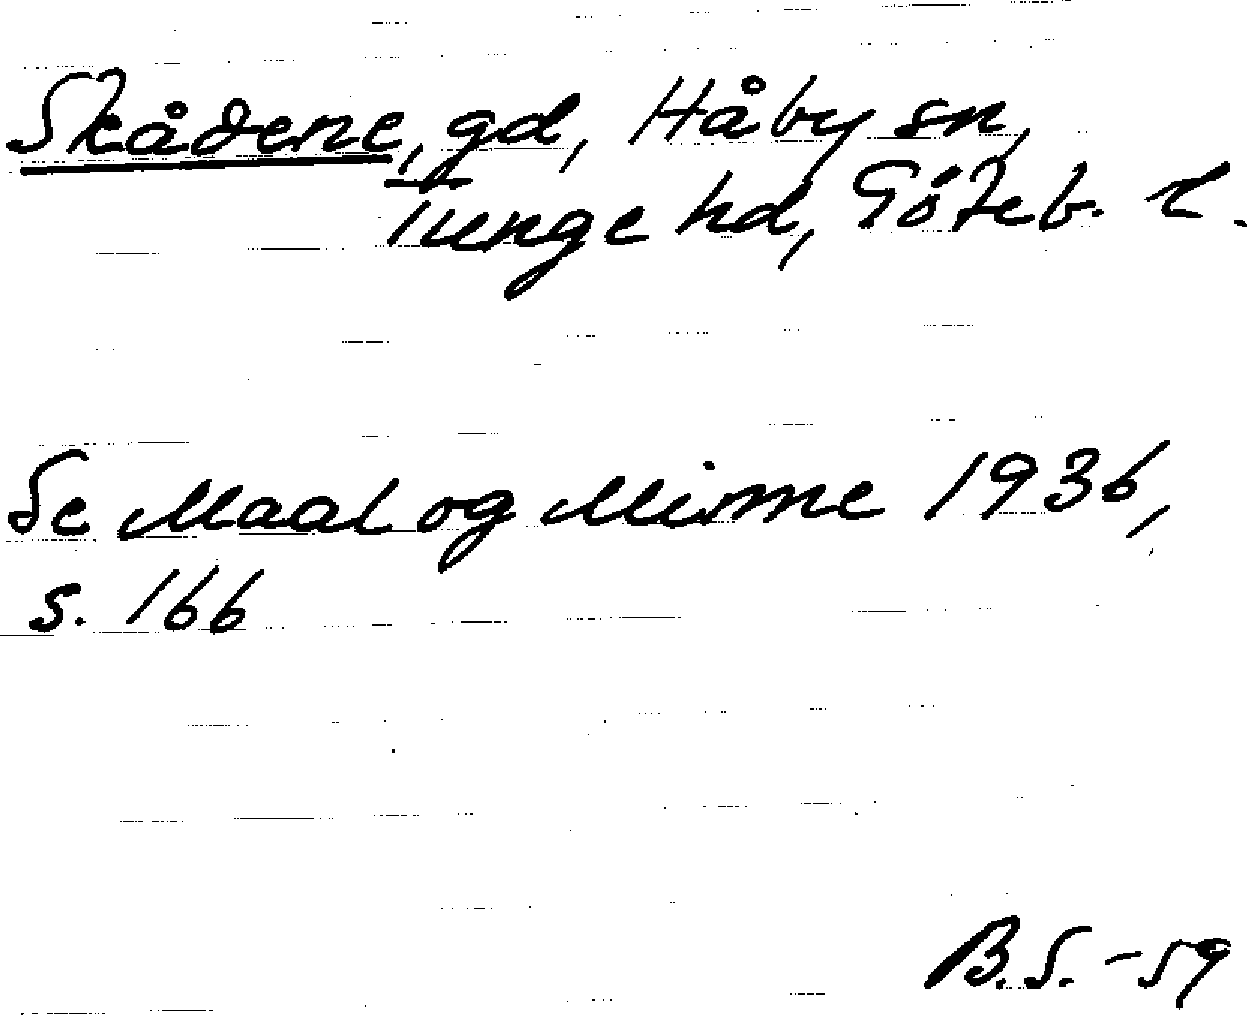 Skådene, gd, Håby sn,
Tunge hd, Göteb. l.
Se Maal og Minne 1936,
s. 166
B.S. -59